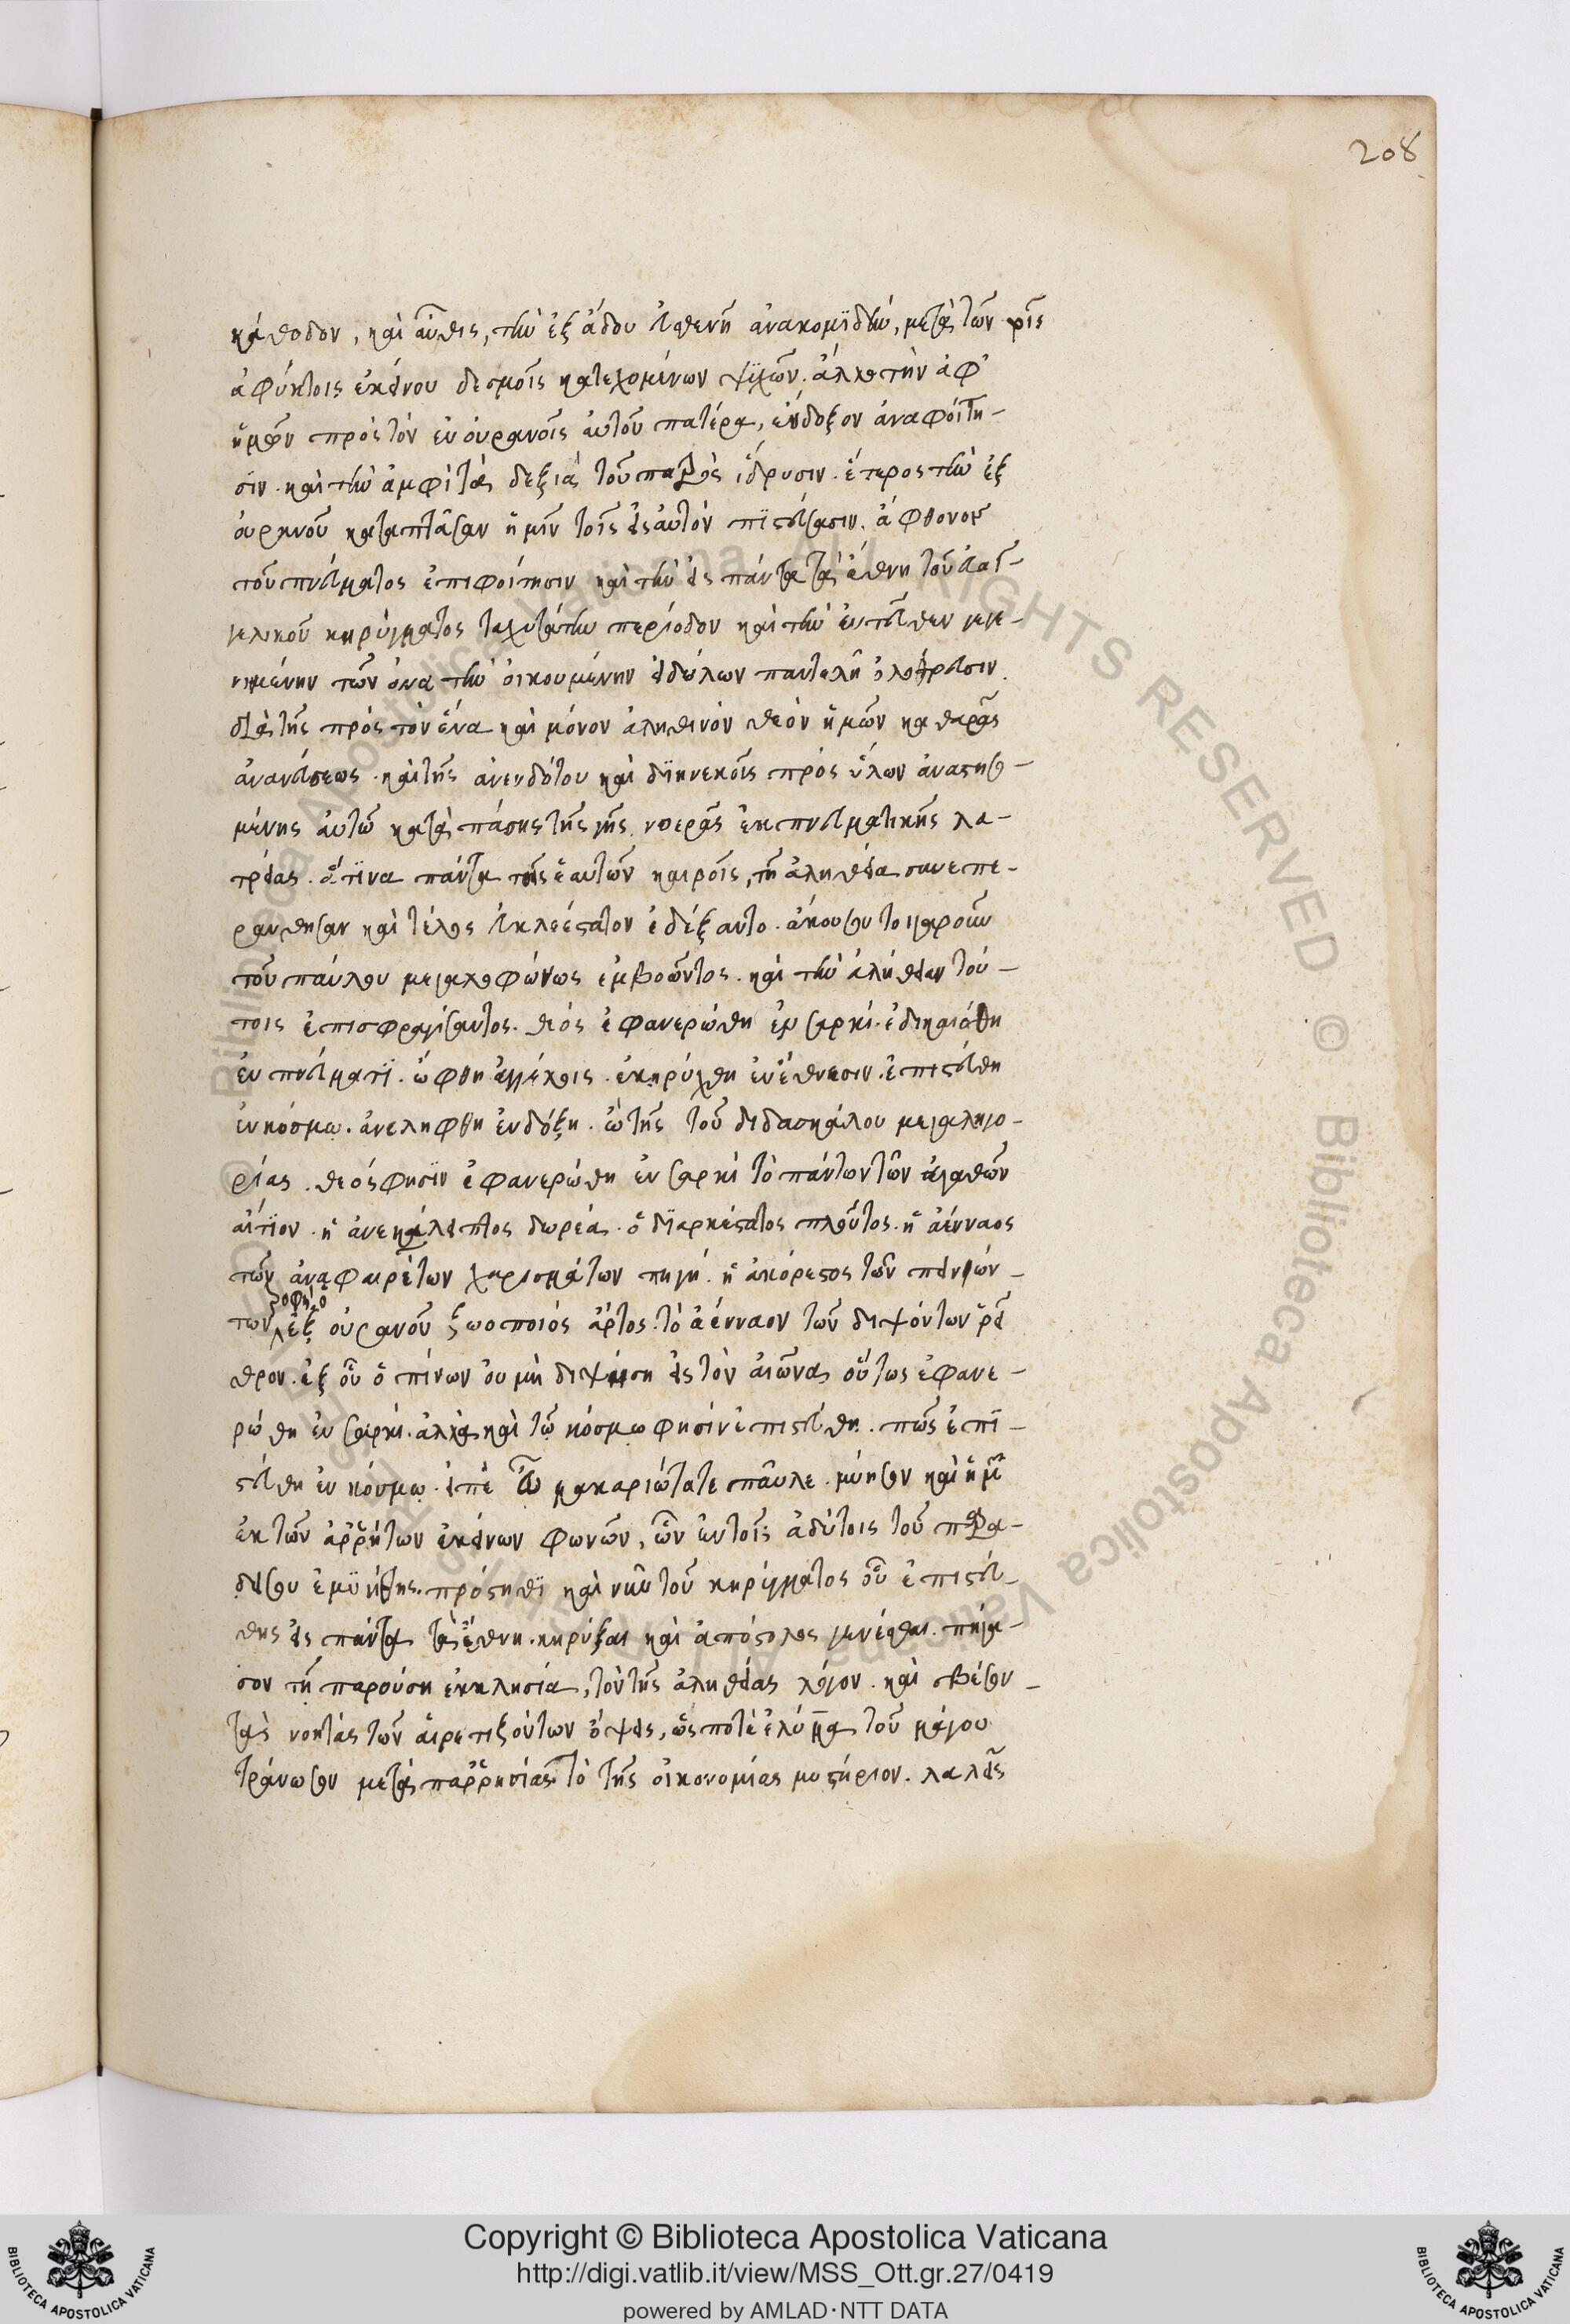 208
κάθοδον, καὶ αὖθις, τὴν ἐξ ἅδου εὐσθενῆ ἀνακομϊδὴν, μετὰ τῶν τοῖς
ἀφύκτοις ἐκείνου δεσμοῖς κατεχομένων ψυχῶν. ἄλλος τὴν ἀφ'
ἡμῶν πρὸς τὸν ἐν οὐρανοῖς αὐτοῦ πατέρα, ἔνδοξον ἀναφοίτη-
σιν. καὶ τὴν ἀμφὶ τὰ δεξιὰ τοῦ πατρὸς ἵδρυσιν. ἕτερος τὴν ἐξ
οὐρανοῦ καταπτᾶσαν ἡμῖν τοῖς εἰς αὐτὸν πϊστεύσασιν. ἄφθονον
τοῦ πνεύματος ἐπιφοίτησιν καὶ τὴν εἰς πάντα τὰ ἔθνη τοῦ εὐαγ-
γελικοῦ κηρύγματος ταχυτάτην περίοδον καὶ τὴν ἐντεῦθεν γεγε-
νημένην τῶν ἀνα τὴν οἰκουμένην εἰδώλων παντελῆ ὀλόθρευσιν.
διὰ τῆς πρὸς τὸν ἕνα καὶ μόνον ἀληθινὸν θεὸν ἡμῶν καθαρᾶς
ἀνανεύσεως. καὶ τῆς ἀνενδότου καὶ διηνεκοῦς πρὸς ὕλων
μένης αὐτῶ κατὰ πάσης τῆς γῆς. νοερᾶς ἐκ πνευματικῆς λα-
τρείας. ἅτϊνα πάντα τοῖς ἑαυτῶν καιροῖς, τῆ ἀληθεία συνεπε-
ράνθησαν καὶ τέλος εὐκλεέστατον ἐδέξαντο. ἀκούσον τοιγαροῦν
τοῦ παύλου μεγαλοφώνως ἐμβοῶντος. καὶ τὴν ἀλήθειαν τού-
τοις ἐπισφραγίσαντος. θεὸς ἐφανερώθη ἐν σαρκί. ἐδικαιώθη
ἐν πνεύματϊ. ὤφθη ἀγγέλοις. ἐκηρύχθη ἐν ἔθνεσιν. ἐπιστεύθη
ἐν κόσμω. ἀνελήφθη ἐν δόξη. ὢ τῆς τοῦ διδασκάλου μεγαληγο-
ρίας. θεός φησϊν ἐφανερώθη ἐν σαρκὶ τὸ πάντων τῶν ἀγαθῶν
αἴτϊον. ἡ ἀνεκάλειπτος δωρεά. ὁ διαρκέστατος πλοῦτος. ἡ ἀένναος
τῶν ἀναφαιρέτων χαρισμάτων πηγή. ἡ ἀκόρεστος τῶν πεινών-
των τροφή. ὁ ἐξ οὐρανοῦ ζωοποιός ἄρτος. τὸ ἀένναον τῶν διψόντων ῥεῖ
θρον. ἐξ οὗ ὁ πίνων οὐ μὴ διψήση εἰς τὸν αἰῶνα, οὗτος ἐφανε-
ρώθη ἐν σαρκί. ἀλλὰ καὶ τῶ κόσμω φησὶν ἐπιστεύθη. πῶς ἐπϊ-
στεύθη ἐν κόσμω. εἰπὲ ὦ μακαριώτατε παῦλε. μύησον καὶ ἡμᾶς
ἐκ τῶν ἀῤῥήτων ἐκείνων φωνῶν, ὧν ἐν τοῖς ἀδύτοις τοῦ παρα-
δείσου ἐμϋήθης. πρόστηθϊ καὶ νῦν τοῦ κηρύγματος οὗ ἐπιστεύ-
θης εἰς πάντα τὰ ἔθνη. κηρύξαι καὶ ἀπόστολος γενέσθαι. πήγα-
σον τῆ παρούση ἐκκλησία, τὸν τῆς ἀληθείας λόγον. καὶ σβέσον
τὰς νοητὰς τῶν αἱρετιζόντων ὄψεις, ὥς ποτὲ ἐλύμα τοῦ μάγου
τράνωσον μετὰ παῤῥησίας τὸ τῆς οἰκονομίας μυστήριον. λαλεῖς
Copyright © Biblioteca Apostolica Vaticana
http://digi.vatlib.it/view/MSS_Ott.gr.27/0419
powered by AMLAD·NTT DATA